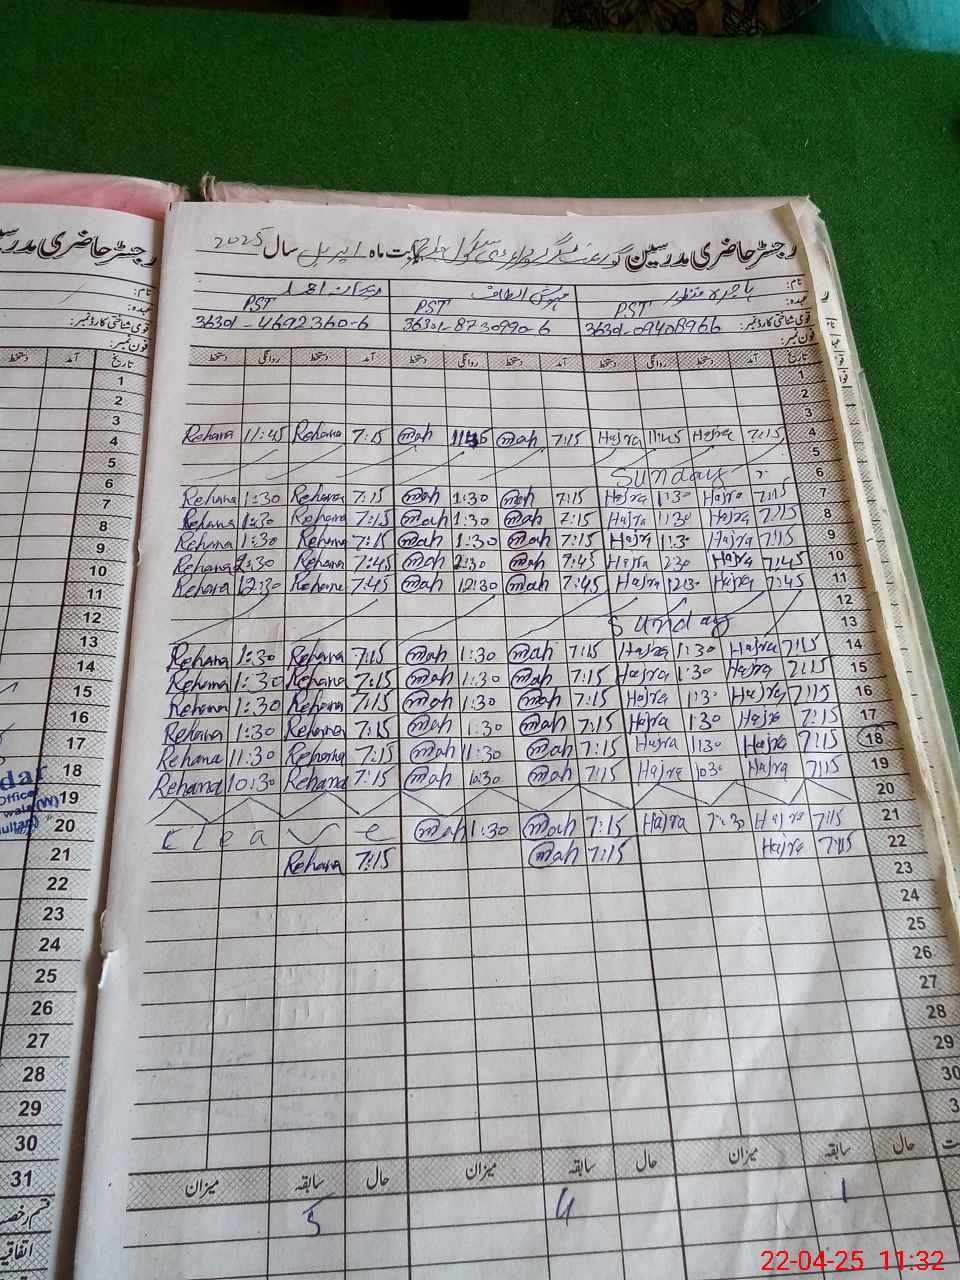 رجسٹر حاضری مدرسین گورنمنٹ گرلز سکول بابت ماہ اپریل سال 2025
نام: ہاجرہ منظور مہوش الطاف ریحانہ
عہدہ: PST PST PST
قومی شناختی کارڈ نمبر: 36301-09408966 36301-8730990-6 36301-4692360-6
فون نمبر:
تاریخ آمد دستخط روانگی دستخط آمد دستخط روانگی دستخط آمد دستخط روانگی دستخط
1
2
3
Rehana 11:45 Rehana 7:15 mah 1145 mah 7:15 Hajra 11:45 Hajra 7:15 4
5
Sunday 6
Rehana 1:30 Rehana 7:15 mah 1:30 mah 7:15 Hajra 1:30 Hajra 7:15 7
Rehana 1:30 Rehana 7:15 mah 1:30 mah 7:15 Hajra 1:30 Hajra 7:15 8
Rehana 1:30 Rehana 7:15 mah 1:30 mah 7:15 Hajra 1:30 Hajra 7:15 9
Rehana 2:30 Rehana 7:45 mah 2:30 mah 7:45 Hajra 230 Hajra 7:45 10
Rehana 12:30 Rehana 7:45 mah 12:30 mah 7:45 Hajra 1230 Hajra 7:45 11
12
Sunday 13
Rehana 1:30 Rehana 7:15 mah 1:30 mah 7:15 Hajra 1:30 Hajra 7:15 14
Rehana 1:30 Rehana 7:15 mah 1:30 mah 7:15 Hajra 1:30 Hajra 7:15 15
Rehana 1:30 Rehana 7:15 mah 1:30 mah 7:15 Hajra 1:30 Hajra 7:15 16
Rehana 1:30 Rehana 7:15 mah 1:30 mah 7:15 Hajra 1:30 Hajra 7:15 17
Rehana 11:30 Rehana 7:15 mah 11:30 mah 7:15 Hajra 1130 Hajra 7:15 18
Rehana 10:30 Rehana 7:15 mah 10:30 mah 7:15 Hajra 1030 Hajra 7:15 19
20
Leave mah 1:30 mah 7:15 Hajra 1:30 Hajra 7:15 21
Rehana 7:15 mah 7:15 Hajra 7:15 22
23
24
25
26
27
28
29
30
حال سابقہ میزان حال سابقہ میزان حال سابقہ میزان
1 4 5
رجسٹر حاضری
نام:
عہدہ:
قومی شناختی کارڈ نمبر:
فون نمبر:
تاریخ آمد دستخط
1
2
3
4
5
6
7
8
9
10
11
12
13
14
15
16
17
18
19
20
21
22
23
24
25
26
27
28
29
30
31
dar
Office
اتفاقیہ
22-04-25 11:32